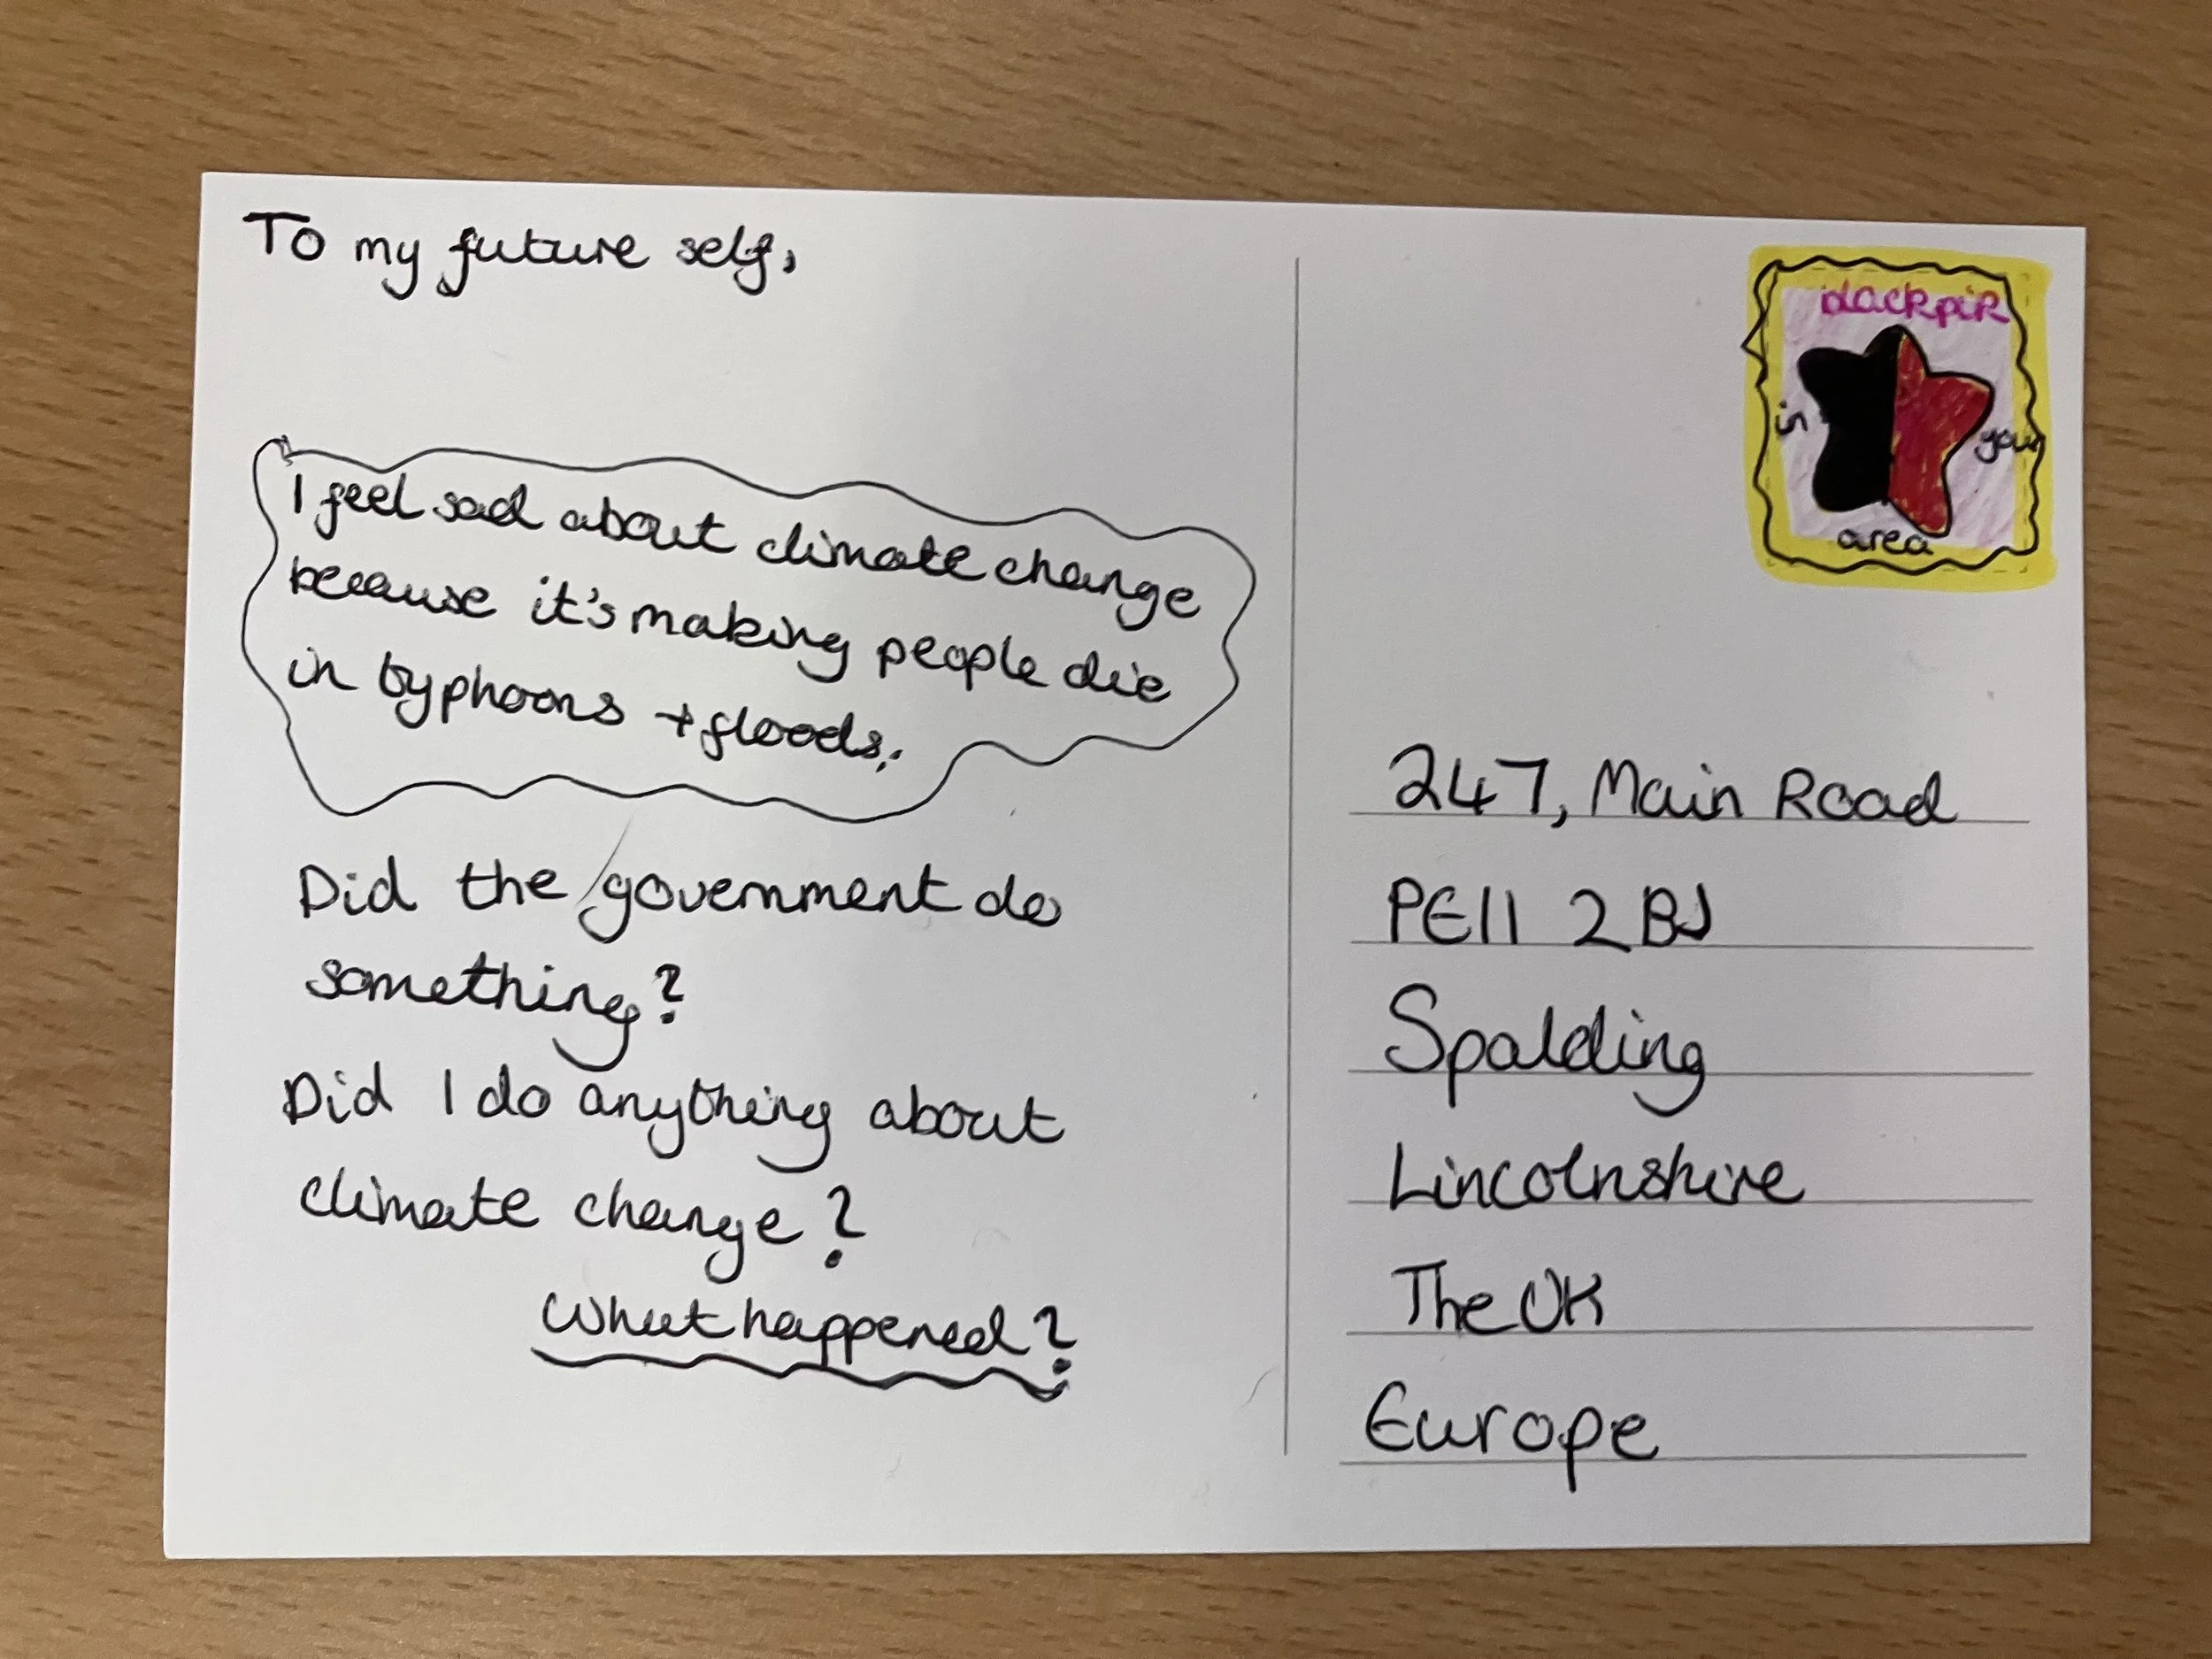 To my future self,
I feel sad about climate change
because it's making people die
in typhoons + floods.
Did the government do
something?
Did I do anything about
climate change?
What happened?
blackpink
in your
area
247, Main Road
PE11 2BJ
Spalding
Lincolnshire
The UK
Europe